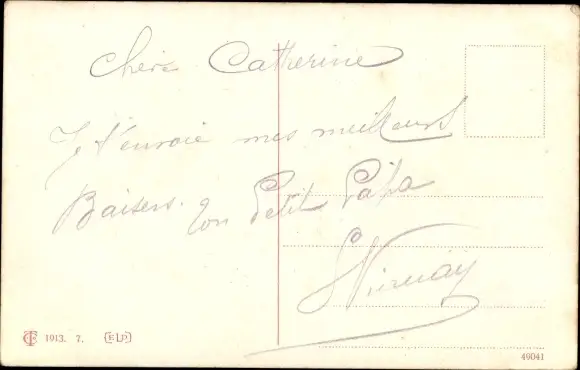 Chère Catherine
Je t'envoie mes meilleurs
Baisers. Ton Petit Papa
1913. 7. ELD
49041